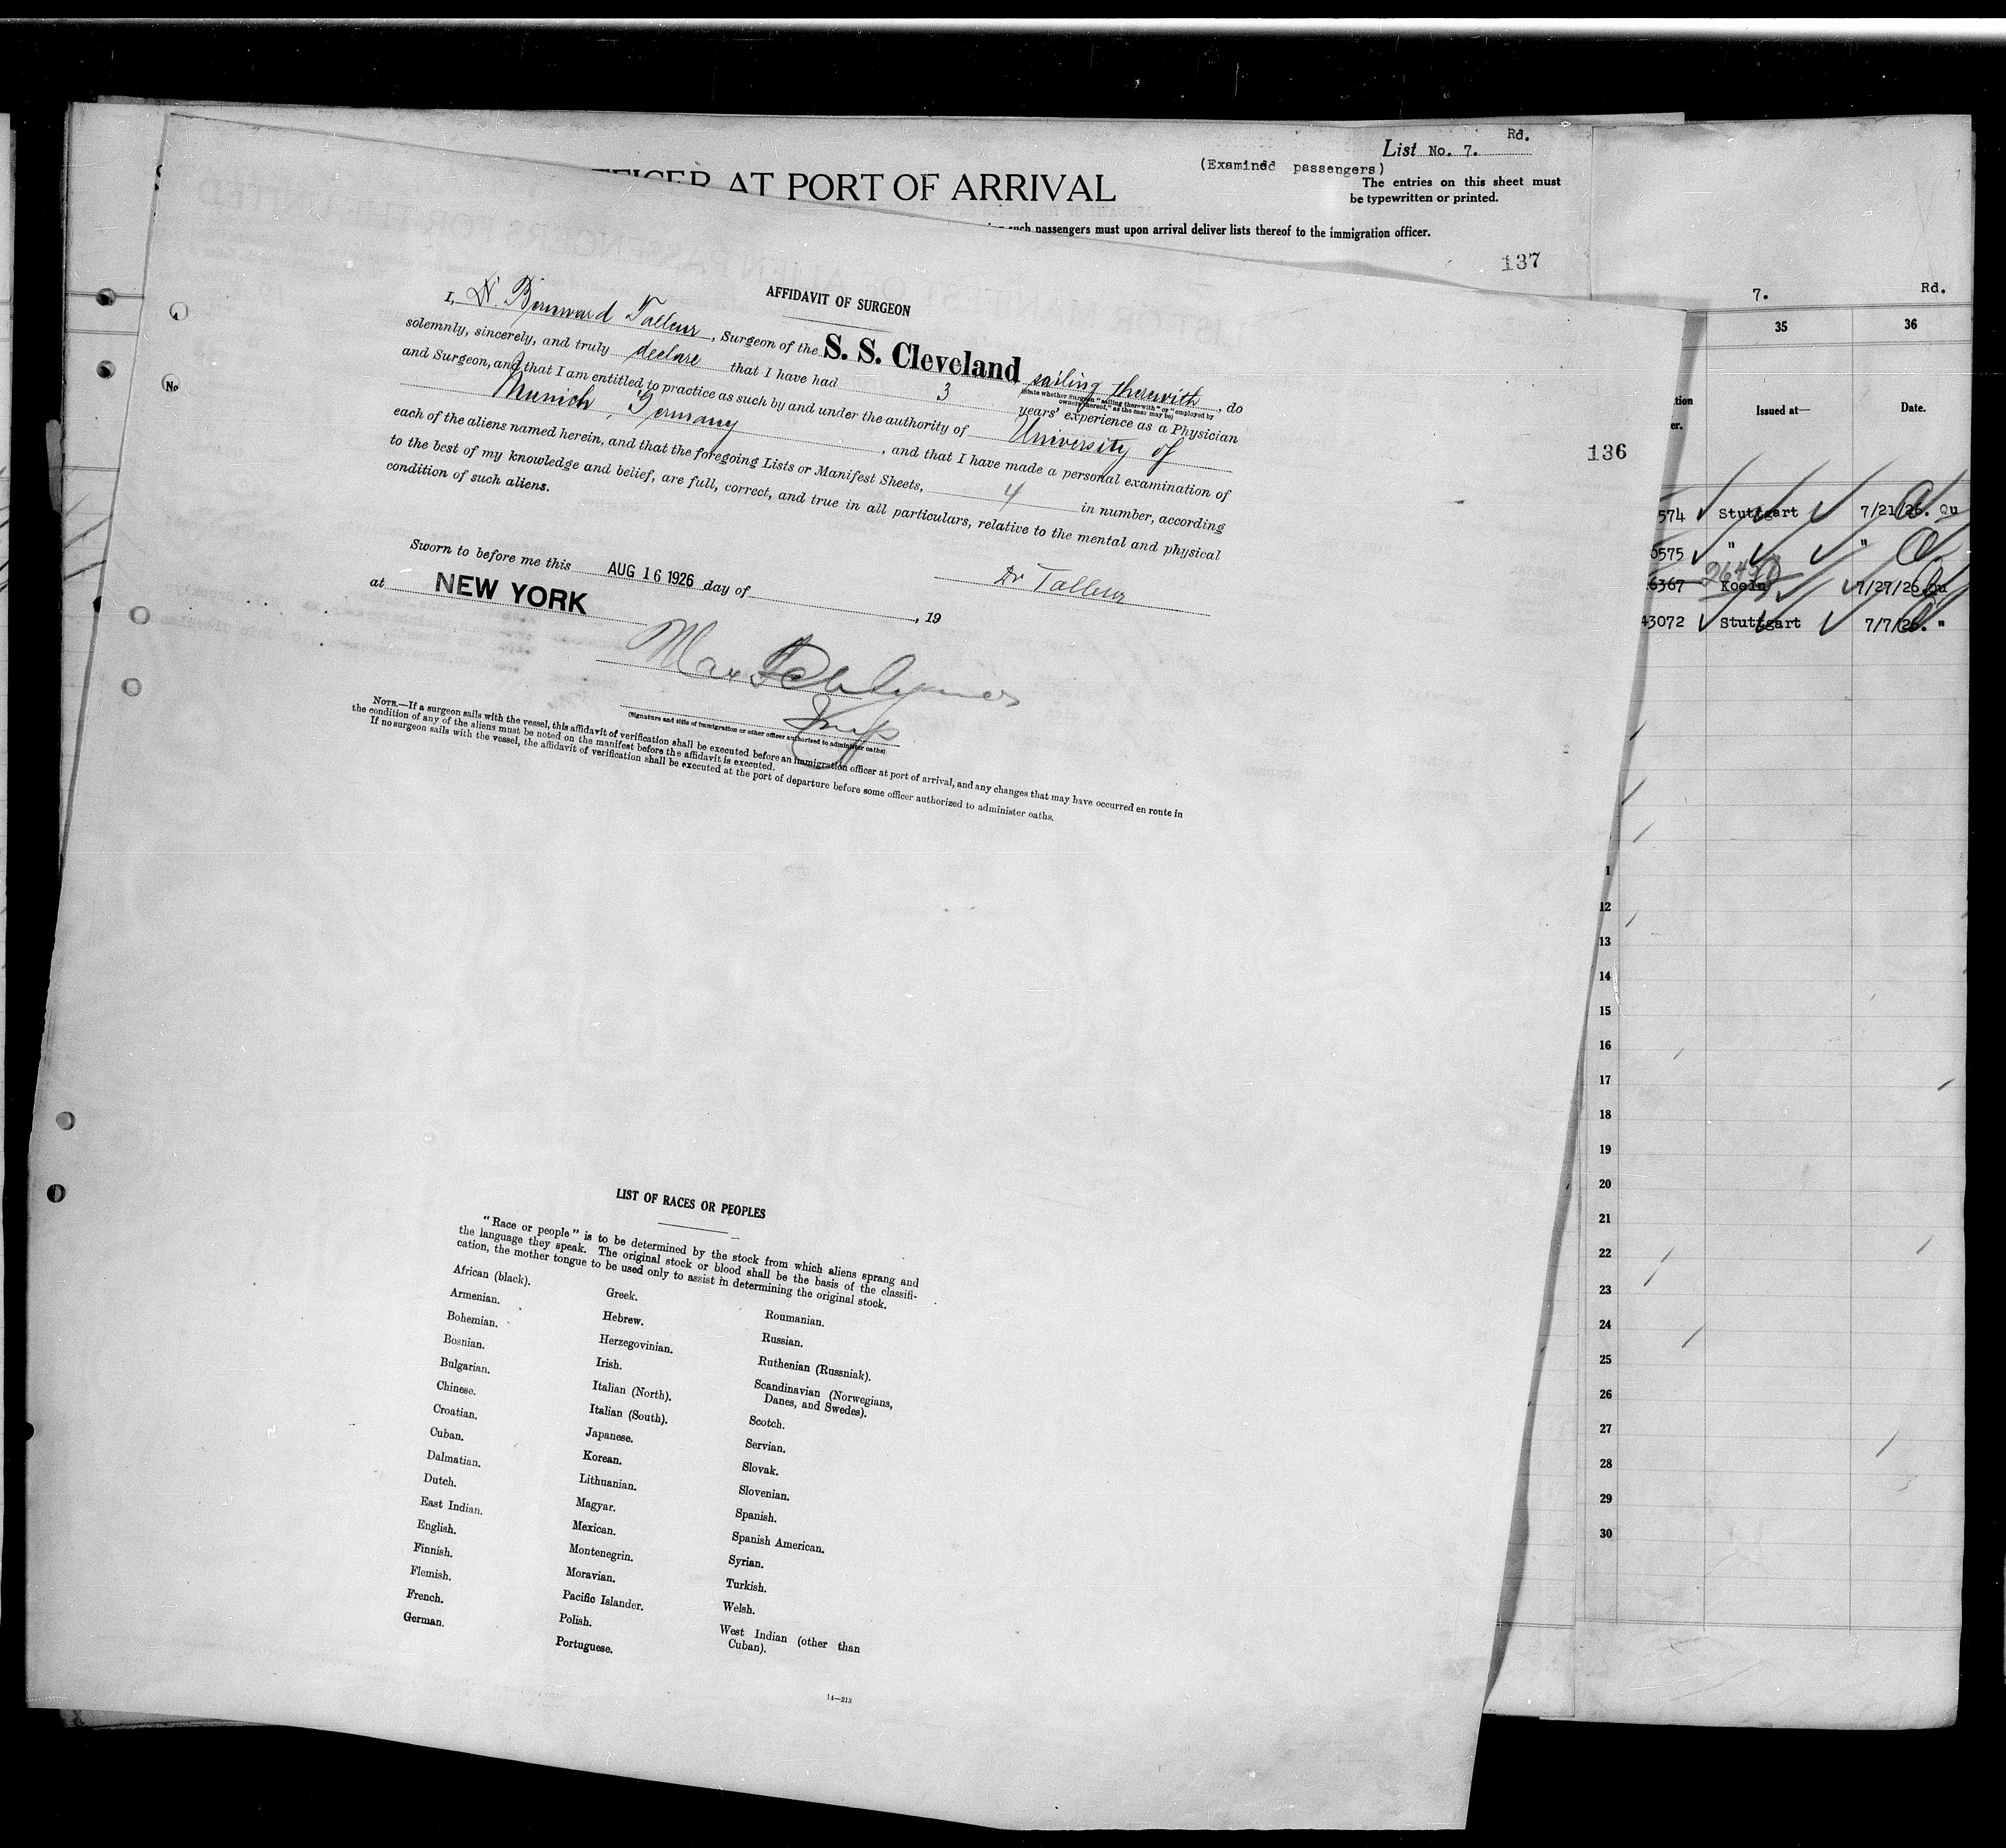 Rd.
List No. 7.
(Examined passengers)
AT PORT OF ARRIVAL
The entries on this sheet must
be typewritten or printed.
such passengers must upon arrival deliver lists thereof to the immigration officer.
137
AFFIDAVIT OF SURGEON
I, , Surgeon of the S. S. Cleveland sailing therewith, do
(State whether Surgeon "sailing therewith" or "employed by
owners thereof," as the case may be)
solemnly, sincerely, and truly declare that I have had 3 years' experience as a Physician
and Surgeon, and that I am entitled to practice as such by and under the authority of University of
Munich, Germany, and that I have made a personal examination of
each of the aliens named herein, and that the foregoing Lists or Manifest Sheets, 4 in number, according
to the best of my knowledge and belief, are full, correct, and true in all particulars, relative to the mental and physical
condition of such aliens.
Sworn to before me this AUG 16 1926 day of , 19
at NEW YORK
Dr
(Signature and title of immigration or other officer authorized to administer oaths)
NOTE.—If a surgeon sails with the vessel, this affidavit of verification shall be executed before an immigration officer at port of arrival, and any changes that may have occurred en route in
the condition of any of the aliens must be noted on the manifest before the affidavit is executed.
If no surgeon sails with the vessel, the affidavit of verification shall be executed at the port of departure before some officer authorized to administer oaths.
LIST OF RACES OR PEOPLES
"Race or people" is to be determined by the stock from which aliens sprang and
the language they speak. The original stock or blood shall be the basis of the classifi-
cation, the mother tongue to be used only to assist in determining the original stock.
African (black).
Armenian.
Bohemian.
Bosnian.
Bulgarian.
Chinese.
Croatian.
Cuban.
Dalmatian.
Dutch.
East Indian.
English.
Finnish.
Flemish.
French.
German.
Greek.
Hebrew.
Herzegovinian.
Irish.
Italian (North).
Italian (South).
Japanese.
Korean.
Lithuanian.
Magyar.
Mexican.
Montenegrin.
Moravian.
Pacific Islander.
Polish.
Portuguese.
Roumanian.
Russian.
Ruthenian (Russniak).
Scandinavian (Norwegians,
Danes, and Swedes).
Scotch.
Servian.
Slovak.
Slovenian.
Spanish.
Spanish American.
Syrian.
Turkish.
Welsh.
West Indian (other than
Cuban).
14—213
No
7. Rd.
35 36
Issued at— Date.
136
574 Stuttgart 7/21/26. Qu
0575 " "
6367 Koeln 7/27/26 Qu
43072 Stuttgart 7/7/26. "
1
12
13
14
15
16
17
18
19
20
21
22
23
24
25
26
27
28
29
30